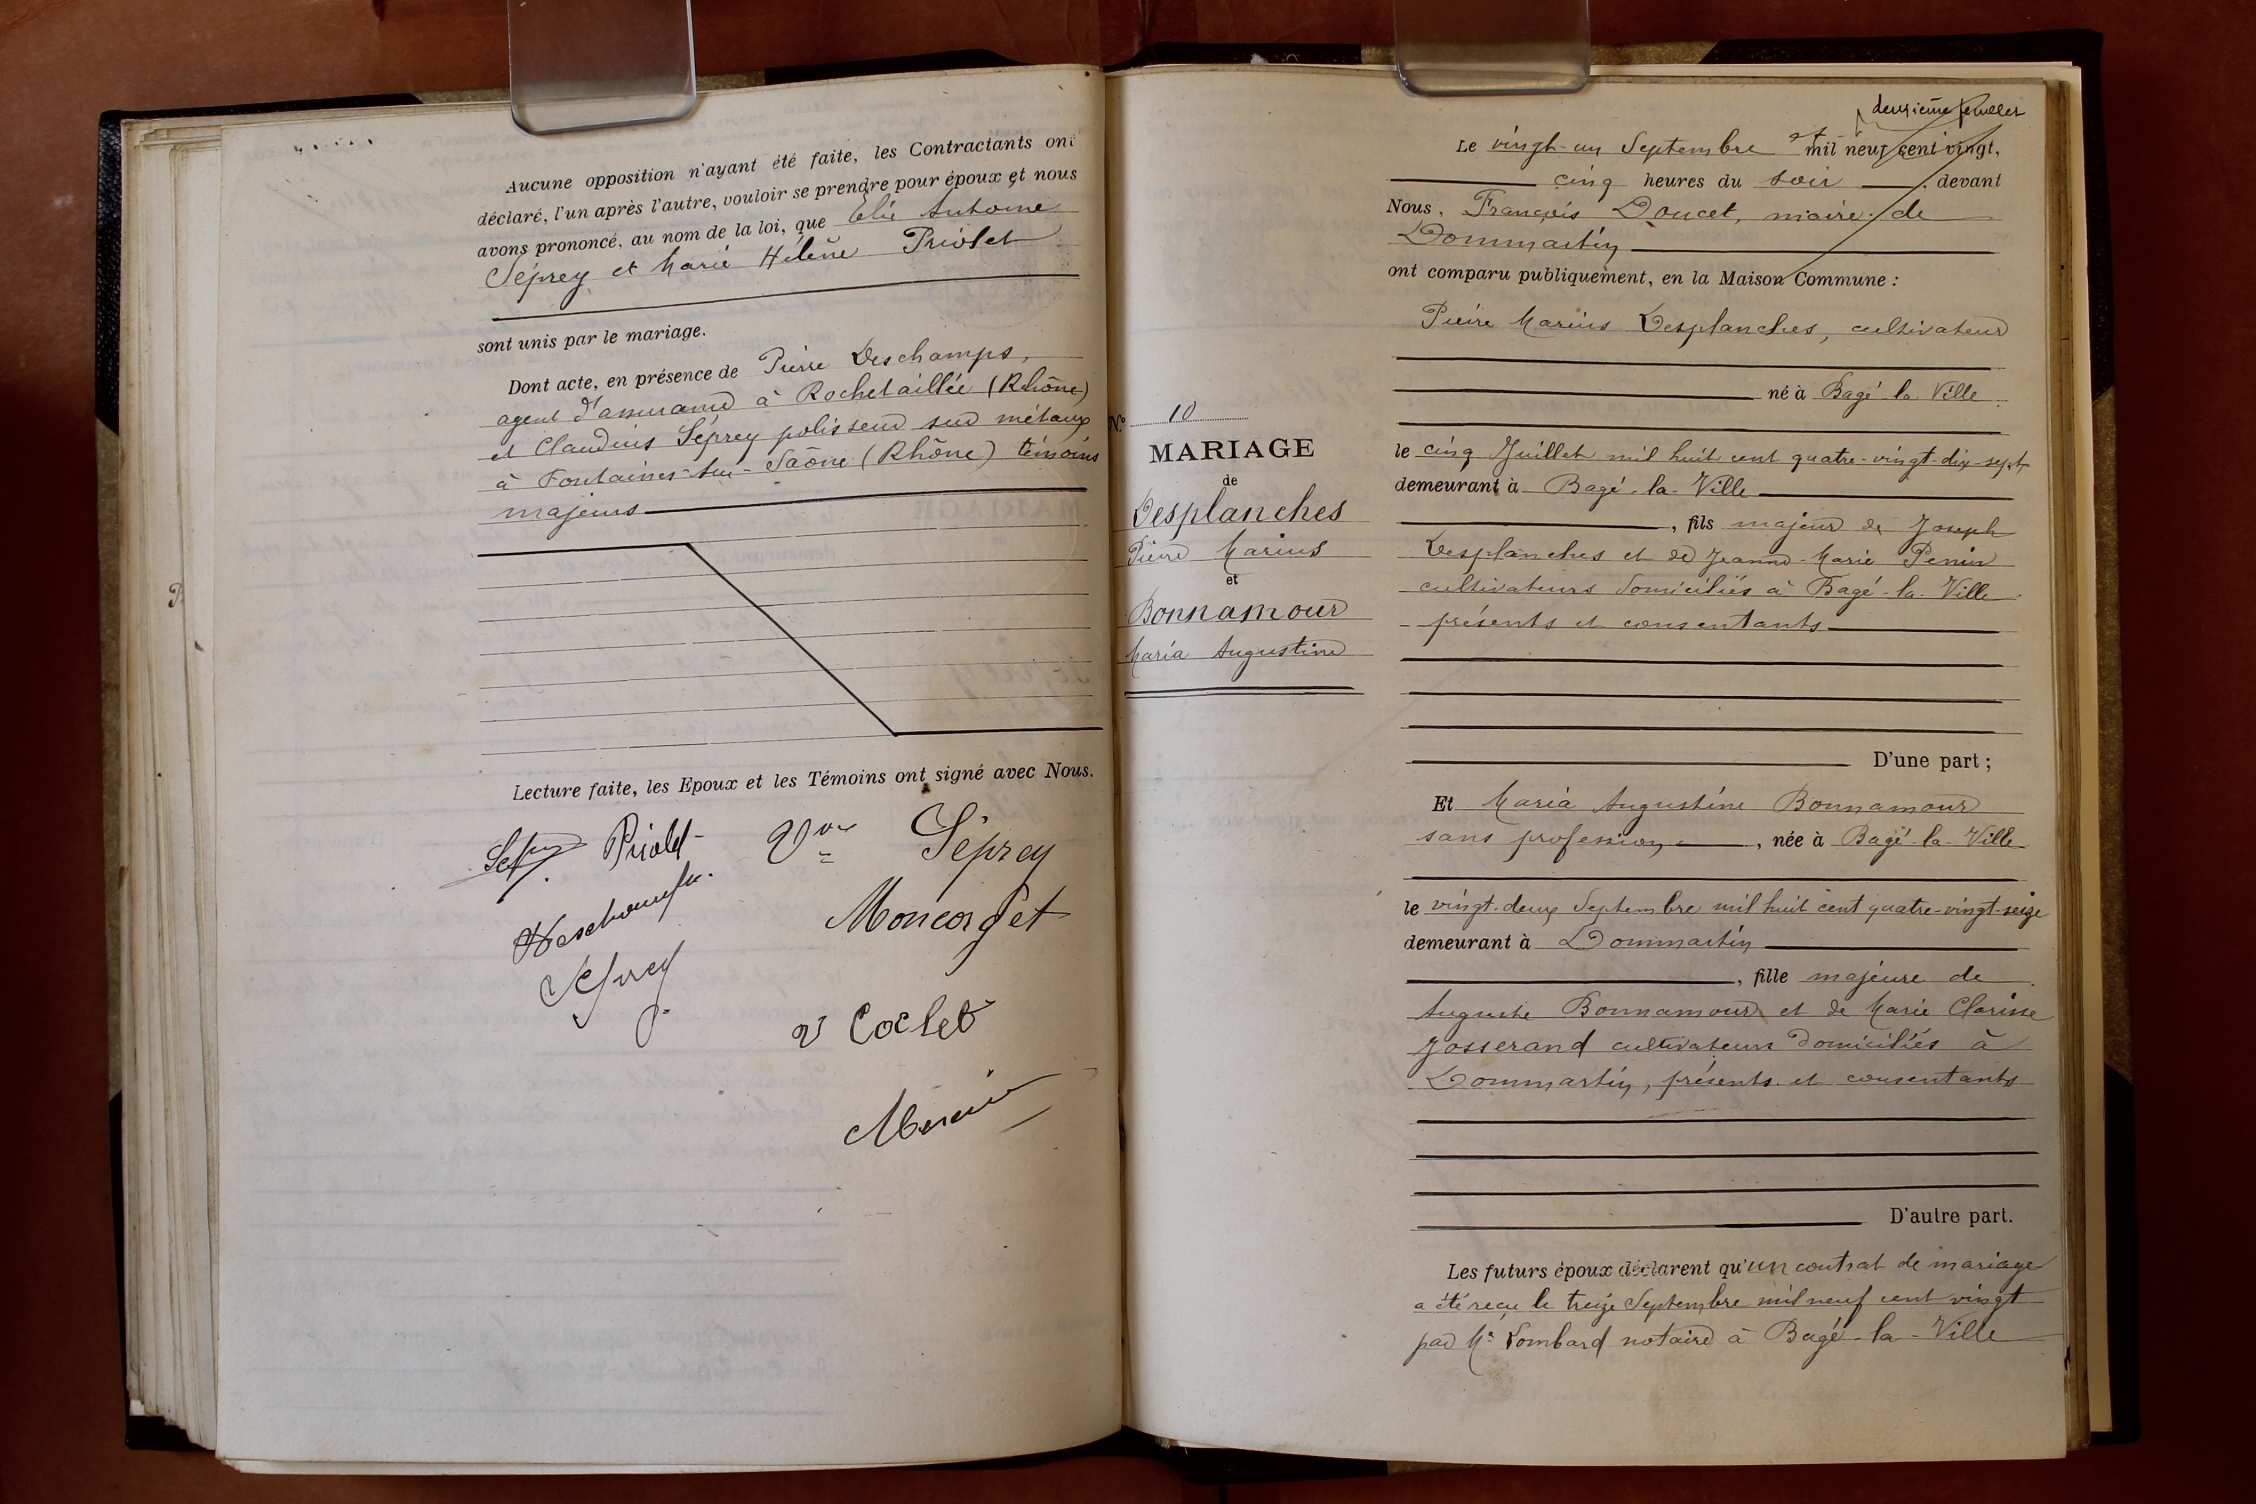 Aucune opposition n'ayant été faite, les Contractants ont
déclaré, l'un après l'autre, vouloir se prendre pour époux et nous
avons prononcé, au nom de la loi, que Elie Antoine
Séprey et Marie Hélène Priolet
sont unis par le mariage.
Dont acte, en présence de Pierre Deschamps,
agent d'assurance à Rochetaillée (Rhône)
et Claudius Séprey polisseur sur métaux
à Fontaines-sur-Saône (Rhône) témoins
majeurs
Lecture faite, les Epoux et les Témoins ont signé avec Nous.
Priolet
Vve Séprey
Moncorget
V Coclet
Mercier
N° 10
MARIAGE
de
Desplanches
Pierre Marius
et
Bonnamour
Maria Augustine
deuxième feuillet
Le vingt-un Septembre mil neuf cent vingt,
cinq heures du soir, devant
Nous, François Doucet, maire de
Dommartin
ont comparu publiquement, en la Maison Commune :
Pierre Marius Desplanches, cultivateur
né à Bagé-la-Ville
le cinq Juillet mil huit cent quatre-vingt-dix-sept
demeurant à Bagé-la-Ville
, fils majeur de Joseph
Desplanches et de Jeanne-Marie Penin
cultivateurs domiciliés à Bagé-la-Ville
présents et consentants
D'une part ;
Et Maria Augustine Bonnamour
sans profession, née à Bagé-la-Ville
le vingt-deux Septembre mil huit cent quatre-vingt-seize
demeurant à Dommartin
, fille majeure de
Auguste Bonnamour et de Marie Clarisse
Josserand cultivateurs domiciliés à
Dommartin, présents et consentants
D'autre part.
Les futurs époux déclarent qu'un contrat de mariage
a été reçu le treize Septembre mil neuf cent vingt
par Me Lombard notaire à Bagé-la-Ville